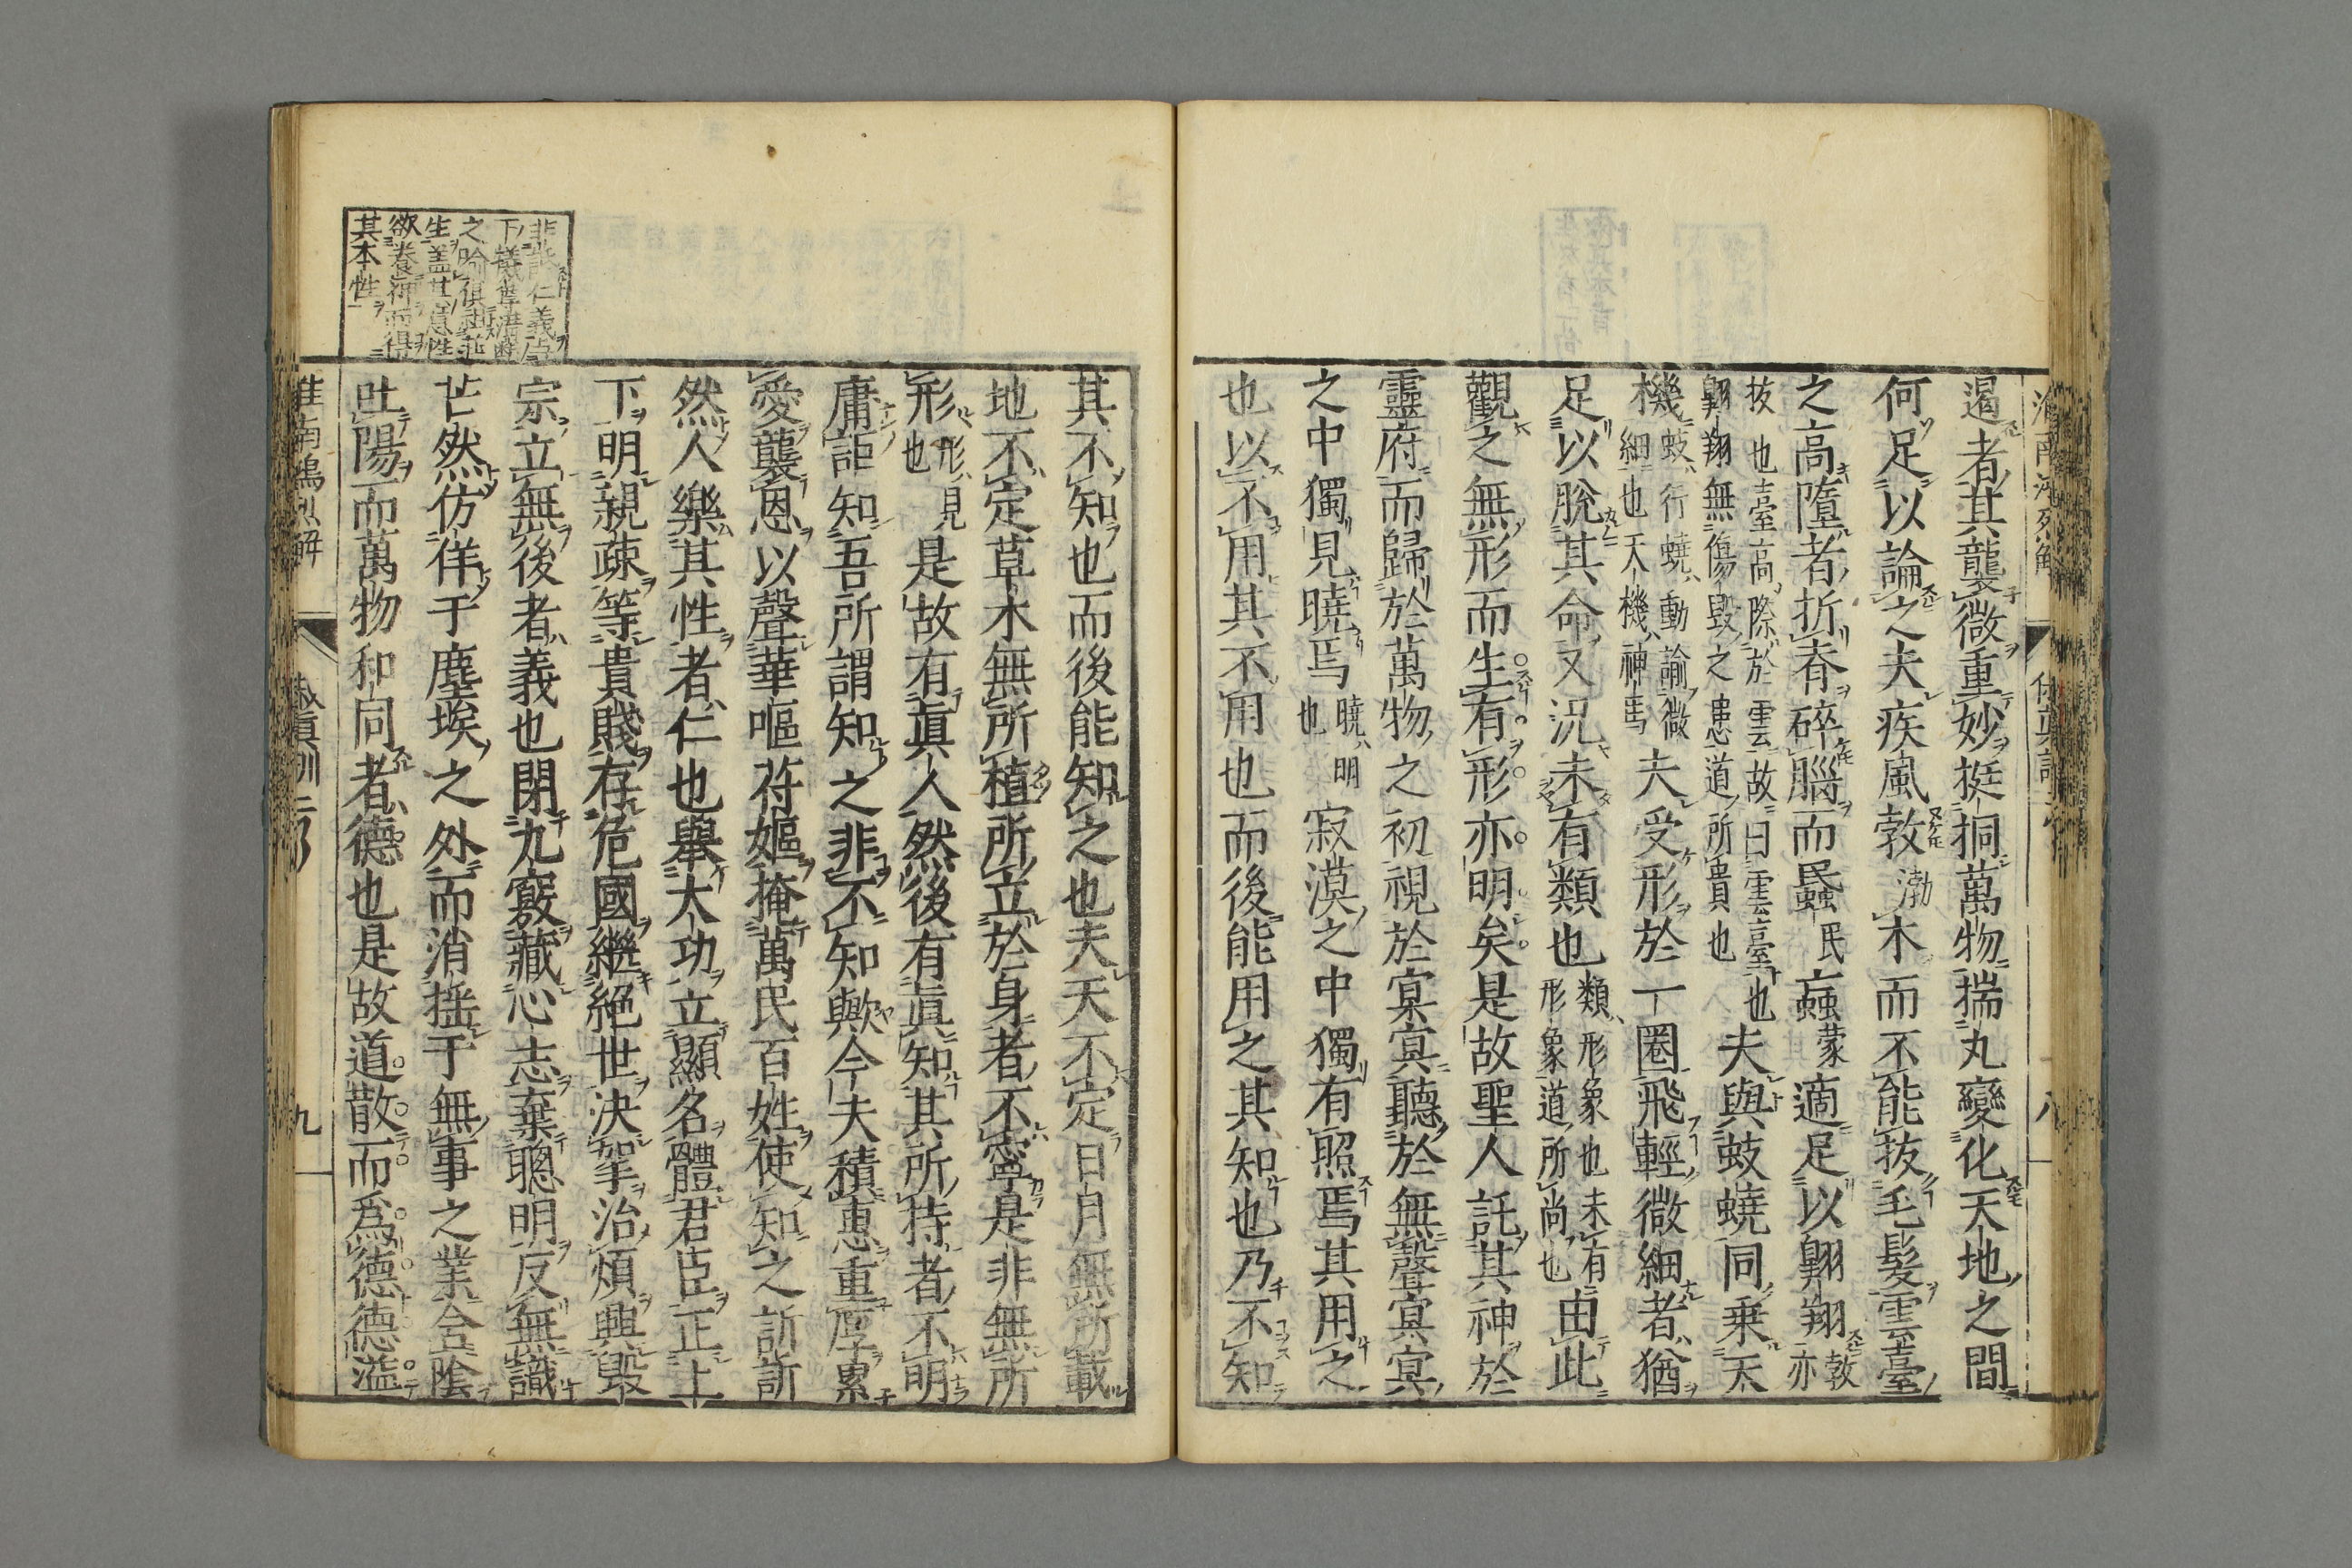 遏者其襲微重妙挺挏萬物揣丸變化天地之間
何足以論之夫疾風敦渤木而不能拔毛髮雲臺
之高墮者折脊碎腦而蟁民䖟蒙適足以翺翔敦亦
拔也臺高際於雲故曰雲臺也
翺翔無傷毀之患道所貴也
夫與蚑蟯同乗天
機
蚑行蟯動諭微
細也天機神馬
夫受形於一圈飛輕微細者猶
足以脫其命又況未有類也
類形象也未有
形象道所尚也
由此
觀之無形而生有形亦明矣是故聖人託其神於
靈府而歸於萬物之初視於冥冥聽於無聲冥冥
之中獨見曉焉曉明也寂漠之中獨有照焉其用之
也以不用其不用也而後能用之其知也乃不知
其不知也而後能知之也夫天不定日月無所載
地不定草木無所植所立於身者不寧是非無所
形形見也是故有眞人然後有眞知其所持者不明
庸詎知吾所謂知之非不知歟今夫積惠重厚累
愛襲恩以聲華嘔苻嫗掩萬民百姓使知之訢訢
然人樂其性者仁也舉大功立顯名體君臣正上
下明親疎等貴賤存危國繼絕世決挐治煩興毀
宗立無後者義也閉九竅藏心志棄聰明反無識
芒然仿佯于塵埃之外而消揺于無事之業含陰
吐陽而萬物和同者德也是故道散而爲德德溢
淮南鴻烈解
九
其本性